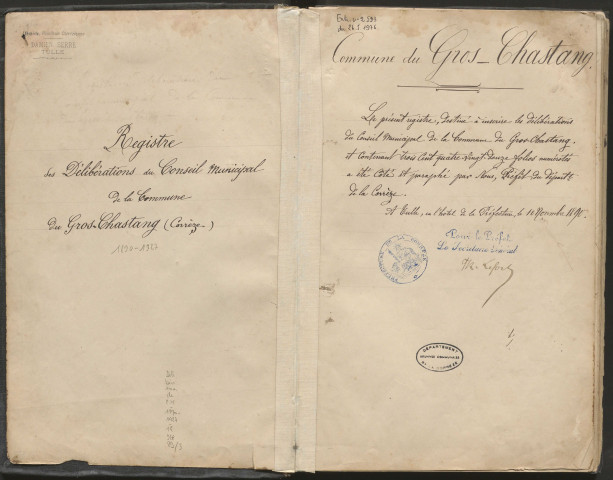 DAMIEN SERRE
TULLE
Registre
des Délibérations du Conseil Municipal
de la Commune
du Gros-Chastang (Corrèze_)
1890-1927
Commune du Gros-Chastang.
Le présent registre, destiné à inscrire les délibérations
du Conseil Municipal de la Commune du Gros-Chastang,
et contenant trois cent quatre vingt douze folios numérotés
a été coté et paraphé par Nous, Préfet du départ.t
de la Corrèze.
A Tulle, en l'hôtel de la Préfecture, le 10 Novembre 1890.
Pour le Préfet,
Le Secrétaire Général
DÉPARTEMENT
ARCHIVES COMMUNALES
DE LA CORRÈZE